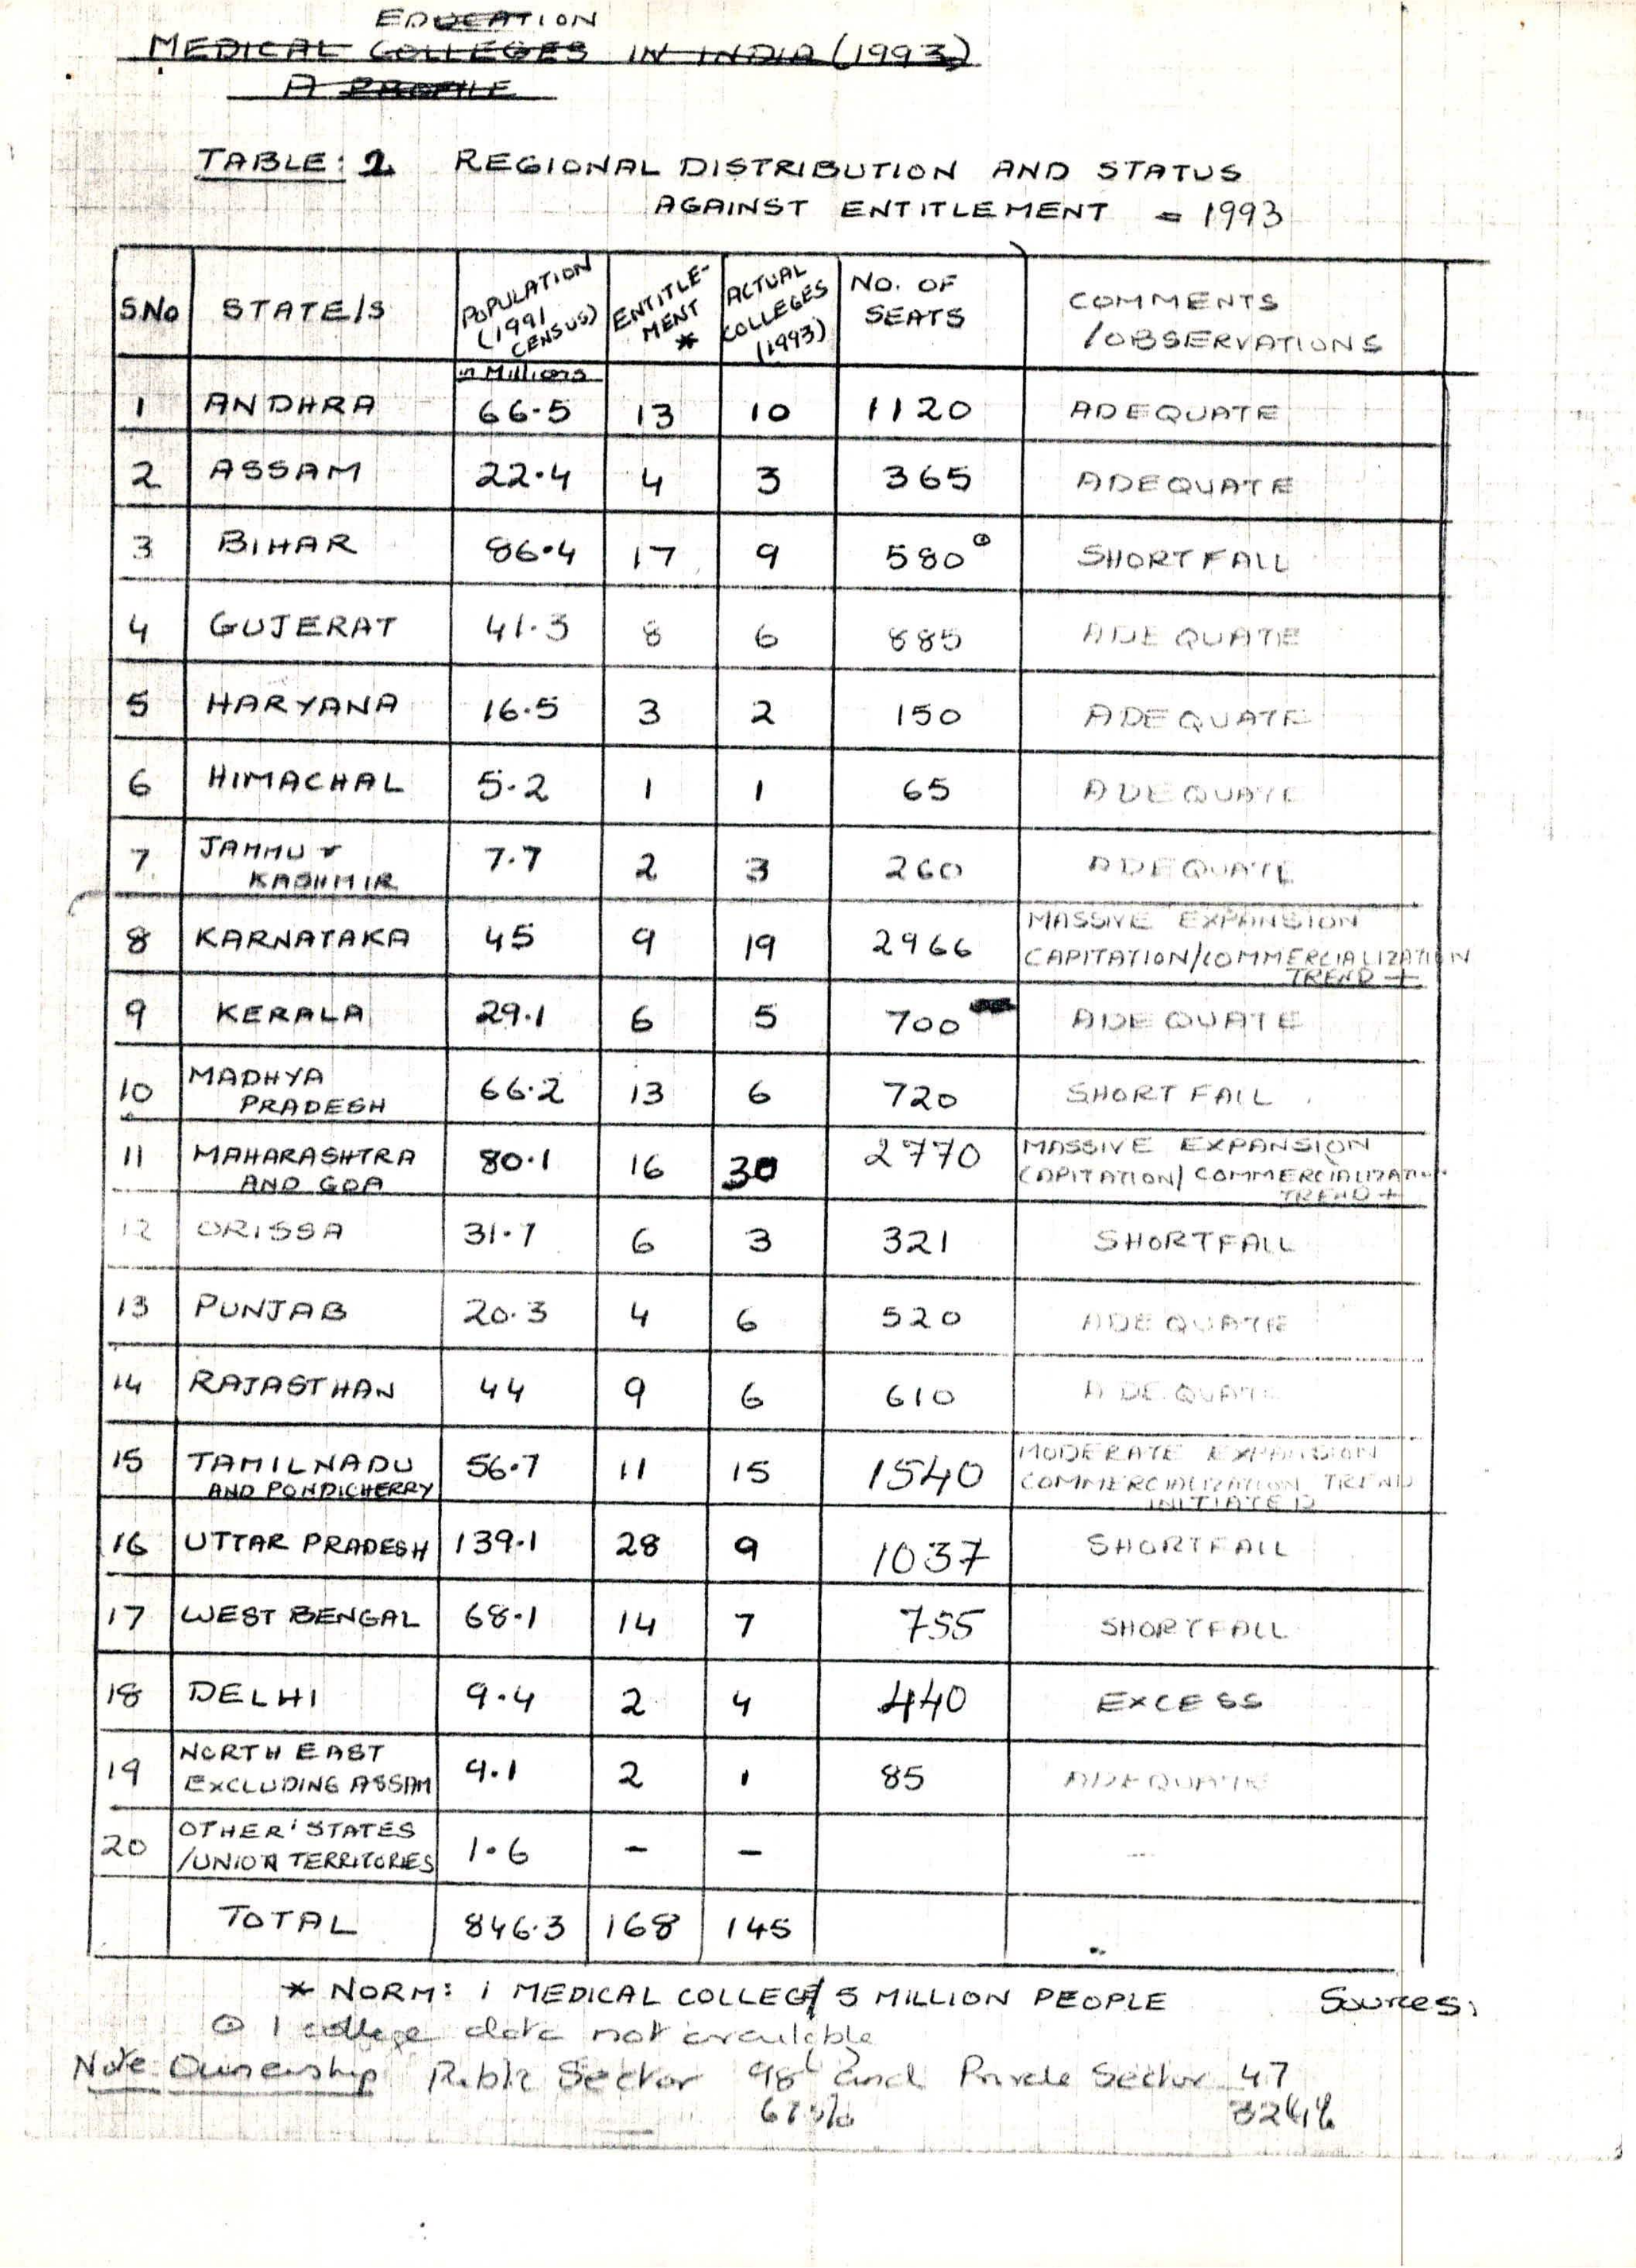 EDUCATION
MEDICAL COLLEGES IN INDIA (1993)
A PROFILE
TABLE: 2 REGIONAL DISTRIBUTION AND STATUS
AGAINST ENTITLEMENT = 1993
S.No STATE/S POPULATION (1991 CENSUS) ENTITLE-MENT * ACTUAL COLLEGES (1993) NO. OF SEATS COMMENTS /OBSERVATIONS
in Millions
1 ANDHRA 66.5 13 10 1120 ADEQUATE
2 ASSAM 22.4 4 3 365 ADEQUATE
3 BIHAR 86.4 17 9 580⊙ SHORTFALL
4 GUJERAT 41.3 8 6 885 ADEQUATE
5 HARYANA 16.5 3 2 150 ADEQUATE
6 HIMACHAL 5.2 1 1 65 ADEQUATE
7 JAMMU & KASHMIR 7.7 2 3 260 ADEQUATE
8 KARNATAKA 45 9 19 2966 MASSIVE EXPANSION CAPITATION/COMMERCIALIZATION TREND +
9 KERALA 29.1 6 5 700 ADEQUATE
10 MADHYA PRADESH 66.2 13 6 720 SHORTFALL
11 MAHARASHTRA AND GOA 80.1 16 30 2770 MASSIVE EXPANSION CAPITATION/COMMERCIALIZATION TREND +
12 ORISSA 31.7 6 3 321 SHORTFALL
13 PUNJAB 20.3 4 6 520 ADEQUATE
14 RAJASTHAN 44 9 6 610 ADEQUATE
15 TAMILNADU AND PONDICHERRY 56.7 11 15 1540 MODERATE EXPANSION COMMERCIALIZATION TREND INITIATED
16 UTTAR PRADESH 139.1 28 9 1037 SHORTFALL
17 WEST BENGAL 68.1 14 7 755 SHORTFALL
18 DELHI 9.4 2 4 440 EXCESS
19 NORTH EAST EXCLUDING ASSAM 9.1 2 1 85 ADEQUATE
20 OTHER STATES /UNION TERRITORIES 1.6 - - --
TOTAL 846.3 168 145
* NORM: 1 MEDICAL COLLEGE/ 5 MILLION PEOPLE Sources:
⊙ 1 college data not available
Note: Ownership Public Sector 98 and Private Sector 47